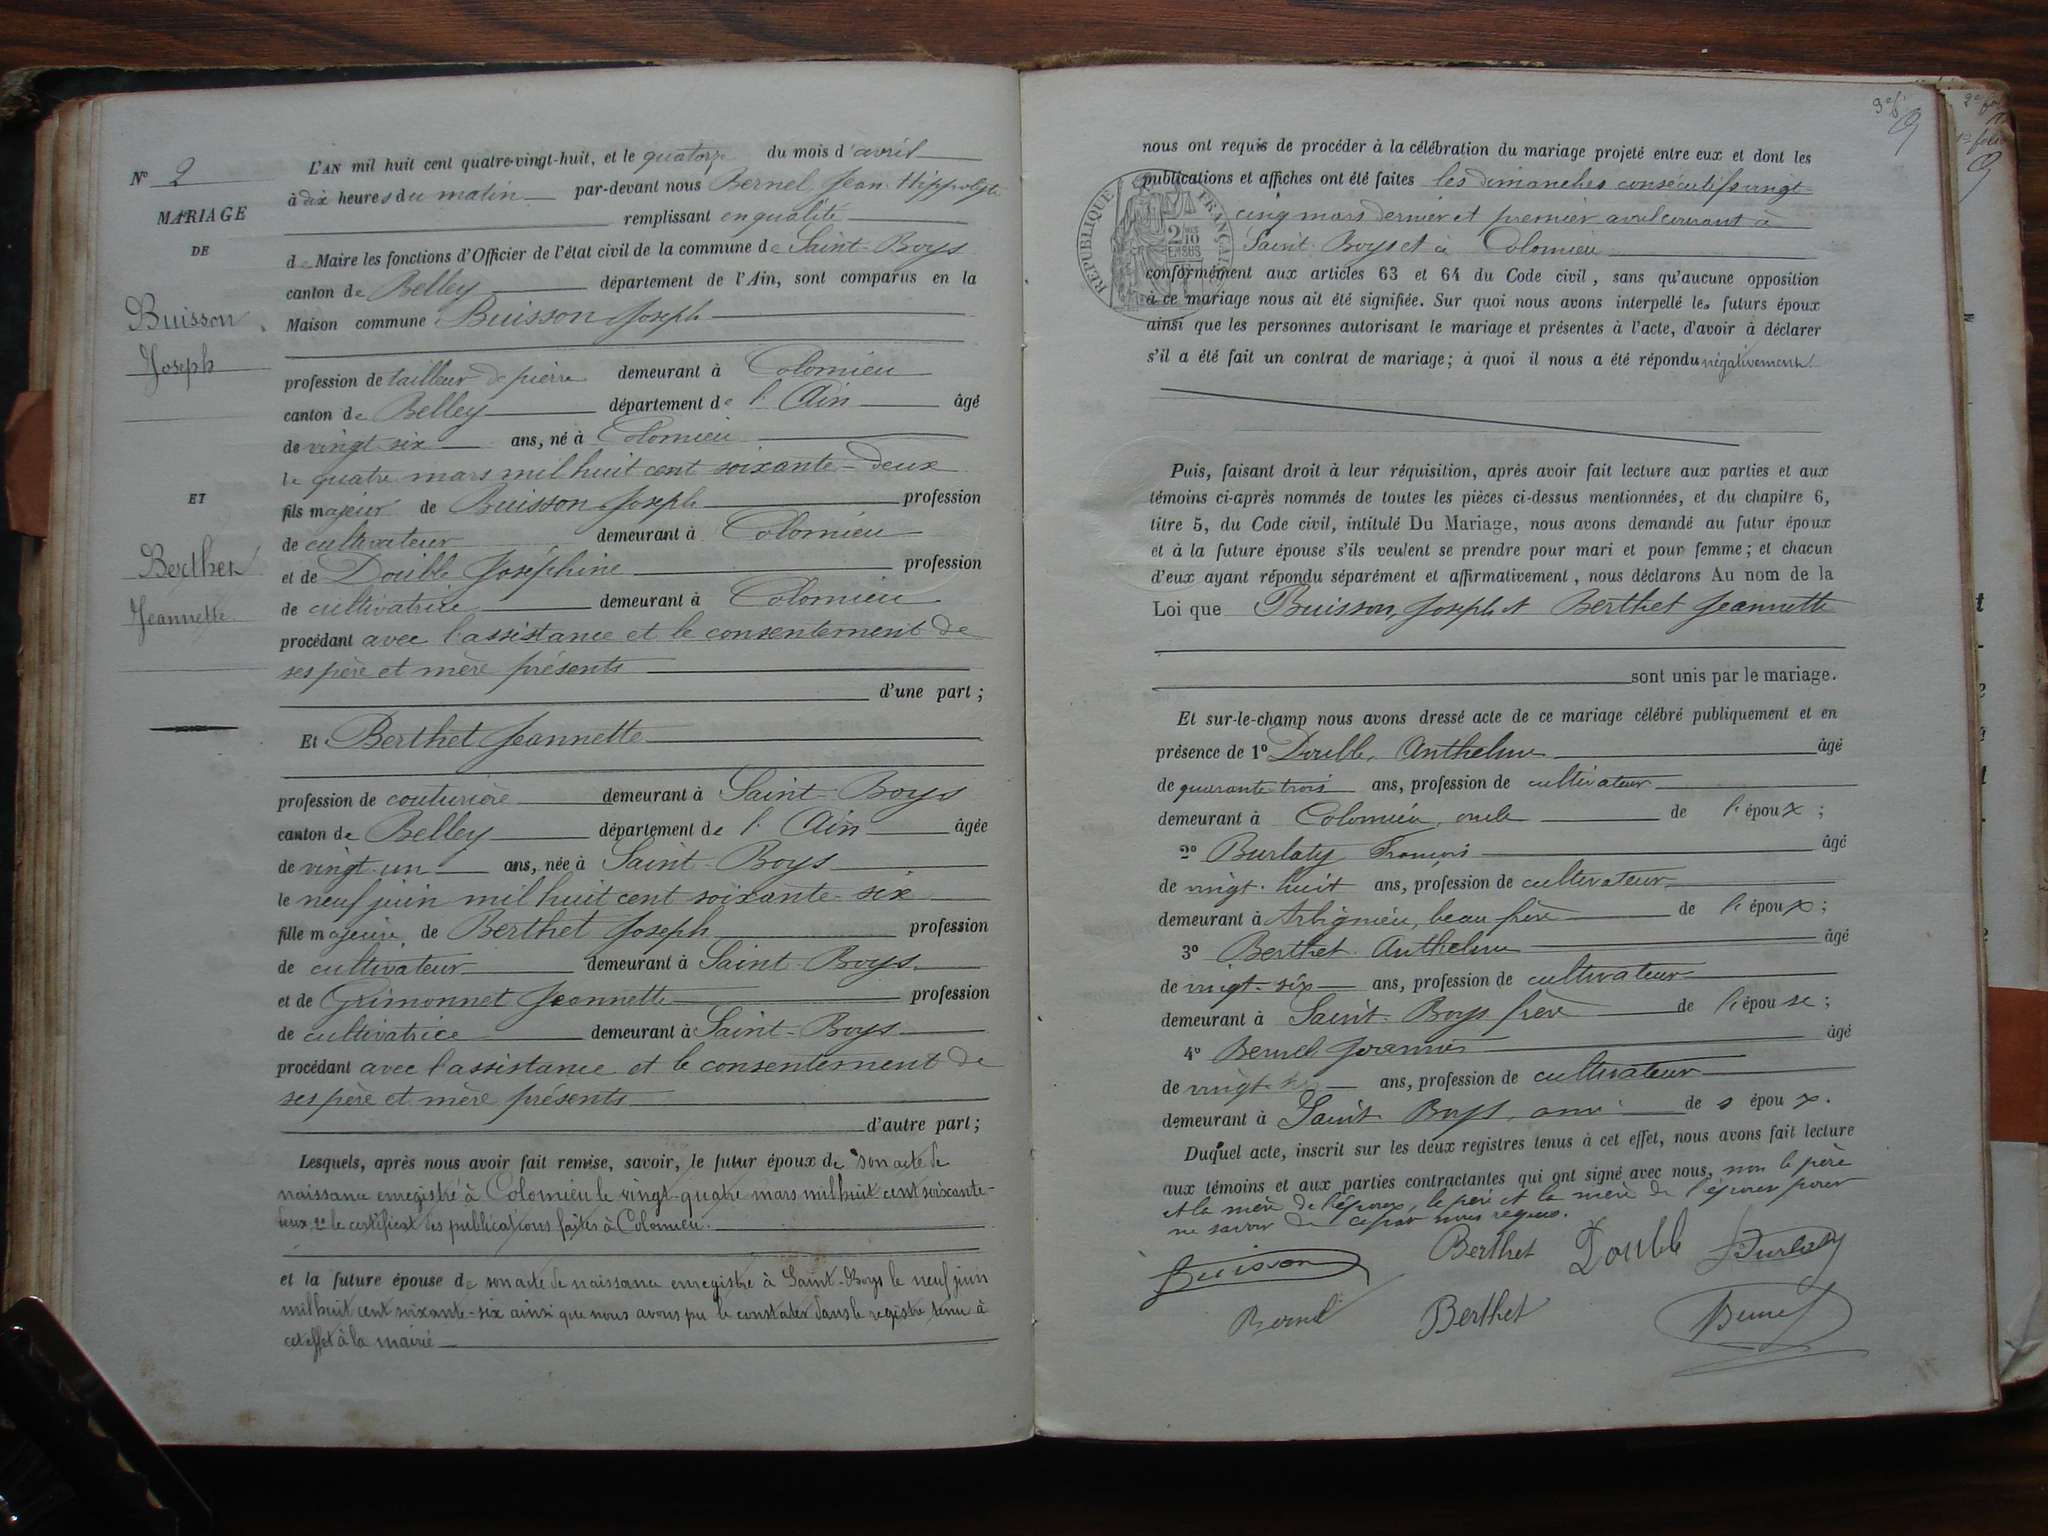 N° 2
MARIAGE
DE
Buisson
Joseph
ET
Berthet
Jeannette
L'AN mil huit cent quatre-vingt-huit, et le quatorze du mois d'avril
à dix heures du matin par-devant nous Bernel Jean Hippolyte
remplissant en qualité
de Maire les fonctions d'Officier de l'état civil de la commune de Saint-Boys
canton de Belley département de l'Ain, sont comparus en la
Maison commune Buisson Joseph
profession de tailleur de pierre demeurant à Colomieu
canton de Belley département de l'Ain âgé
de vingt-six ans, né à Colomieu
le quatre mars mil huit cent soixante-deux
fils majeur de Buisson Joseph profession
de cultivateur demeurant à Colomieu
et de Double Joséphine profession
de cultivatrice demeurant à Colomieu
procédant avec l'assistance et le consentement de
ses père et mère présents
d'une part ;
Et Berthet Jeannette
profession de couturière demeurant à Saint-Boys
canton de Belley département de l'Ain âgée
de vingt-un ans, née à Saint-Boys
le neuf juin mil huit cent soixante-six
fille majeure de Berthet Joseph profession
de cultivateur demeurant à Saint-Boys
et de Grimonnet Jeannette profession
de cultivatrice demeurant à Saint-Boys
procédant avec l'assistance et le consentement de
ses père et mère présents
d'autre part ;
Lesquels, après nous avoir fait remise, savoir, le futur époux de son acte de
naissance enregistré à Colomieu le vingt-quatre mars mil huit cent soixante-
deux 2° le certificat des publications faites à Colomieu.
et la future épouse de son acte de naissance enregistré à Saint-Boys le neuf juin
mil huit cent soixante-six ainsi que nous avons pu le constater dans le registre tenu à
cet effet à la mairie
nous ont requis de procéder à la célébration du mariage projeté entre eux et dont les
publications et affiches ont été faites les dimanches consécutifs vingt
cinq mars dernier et premier avril courant à
Saint-Boys et à Colomieu
RÉPUBLIQUE FRANÇAISE
2/10
EN SUS
conformément aux articles 63 et 64 du Code civil, sans qu'aucune opposition
à ce mariage nous ait été signifiée. Sur quoi nous avons interpellé les futurs époux
ainsi que les personnes autorisant le mariage et présentes à l'acte, d'avoir à déclarer
s'il a été fait un contrat de mariage ; à quoi il nous a été répondu négativement
Puis, faisant droit à leur réquisition, après avoir fait lecture aux parties et aux
témoins ci-après nommés de toutes les pièces ci-dessus mentionnées, et du chapitre 6,
titre 5, du Code civil, intitulé Du Mariage, nous avons demandé au futur époux
et à la future épouse s'ils veulent se prendre pour mari et pour femme ; et chacun
d'eux ayant répondu séparément et affirmativement, nous déclarons Au nom de la
Loi que Buisson Joseph et Berthet Jeannette
sont unis par le mariage.
Et sur-le-champ nous avons dressé acte de ce mariage célébré publiquement et en
présence de 1° Double Anthelme âgé
de quarante-trois ans, profession de cultivateur
demeurant à Colomieu, oncle de l'époux ;
2° Burlaty François âgé
de vingt-huit ans, profession de cultivateur
demeurant à Arbignieu, beau frère de l'époux ;
3° Berthet Anthelme âgé
de vingt-six ans, profession de cultivateur
demeurant à Saint-Boys frère de l'épouse ;
4° Bernel âgé
de vingt- ans, profession de cultivateur
demeurant à Saint Boys, ami des époux.
Duquel acte, inscrit sur les deux registres tenus à cet effet, nous avons fait lecture
aux témoins et aux parties contractantes qui ont signé avec nous, non le père
et la mère de l'époux, le père et la mère de l'épouse pour
ne savoir de ce par nous requis.
Buisson Berthet Double Burlaty
Bernel Berthet Bernel